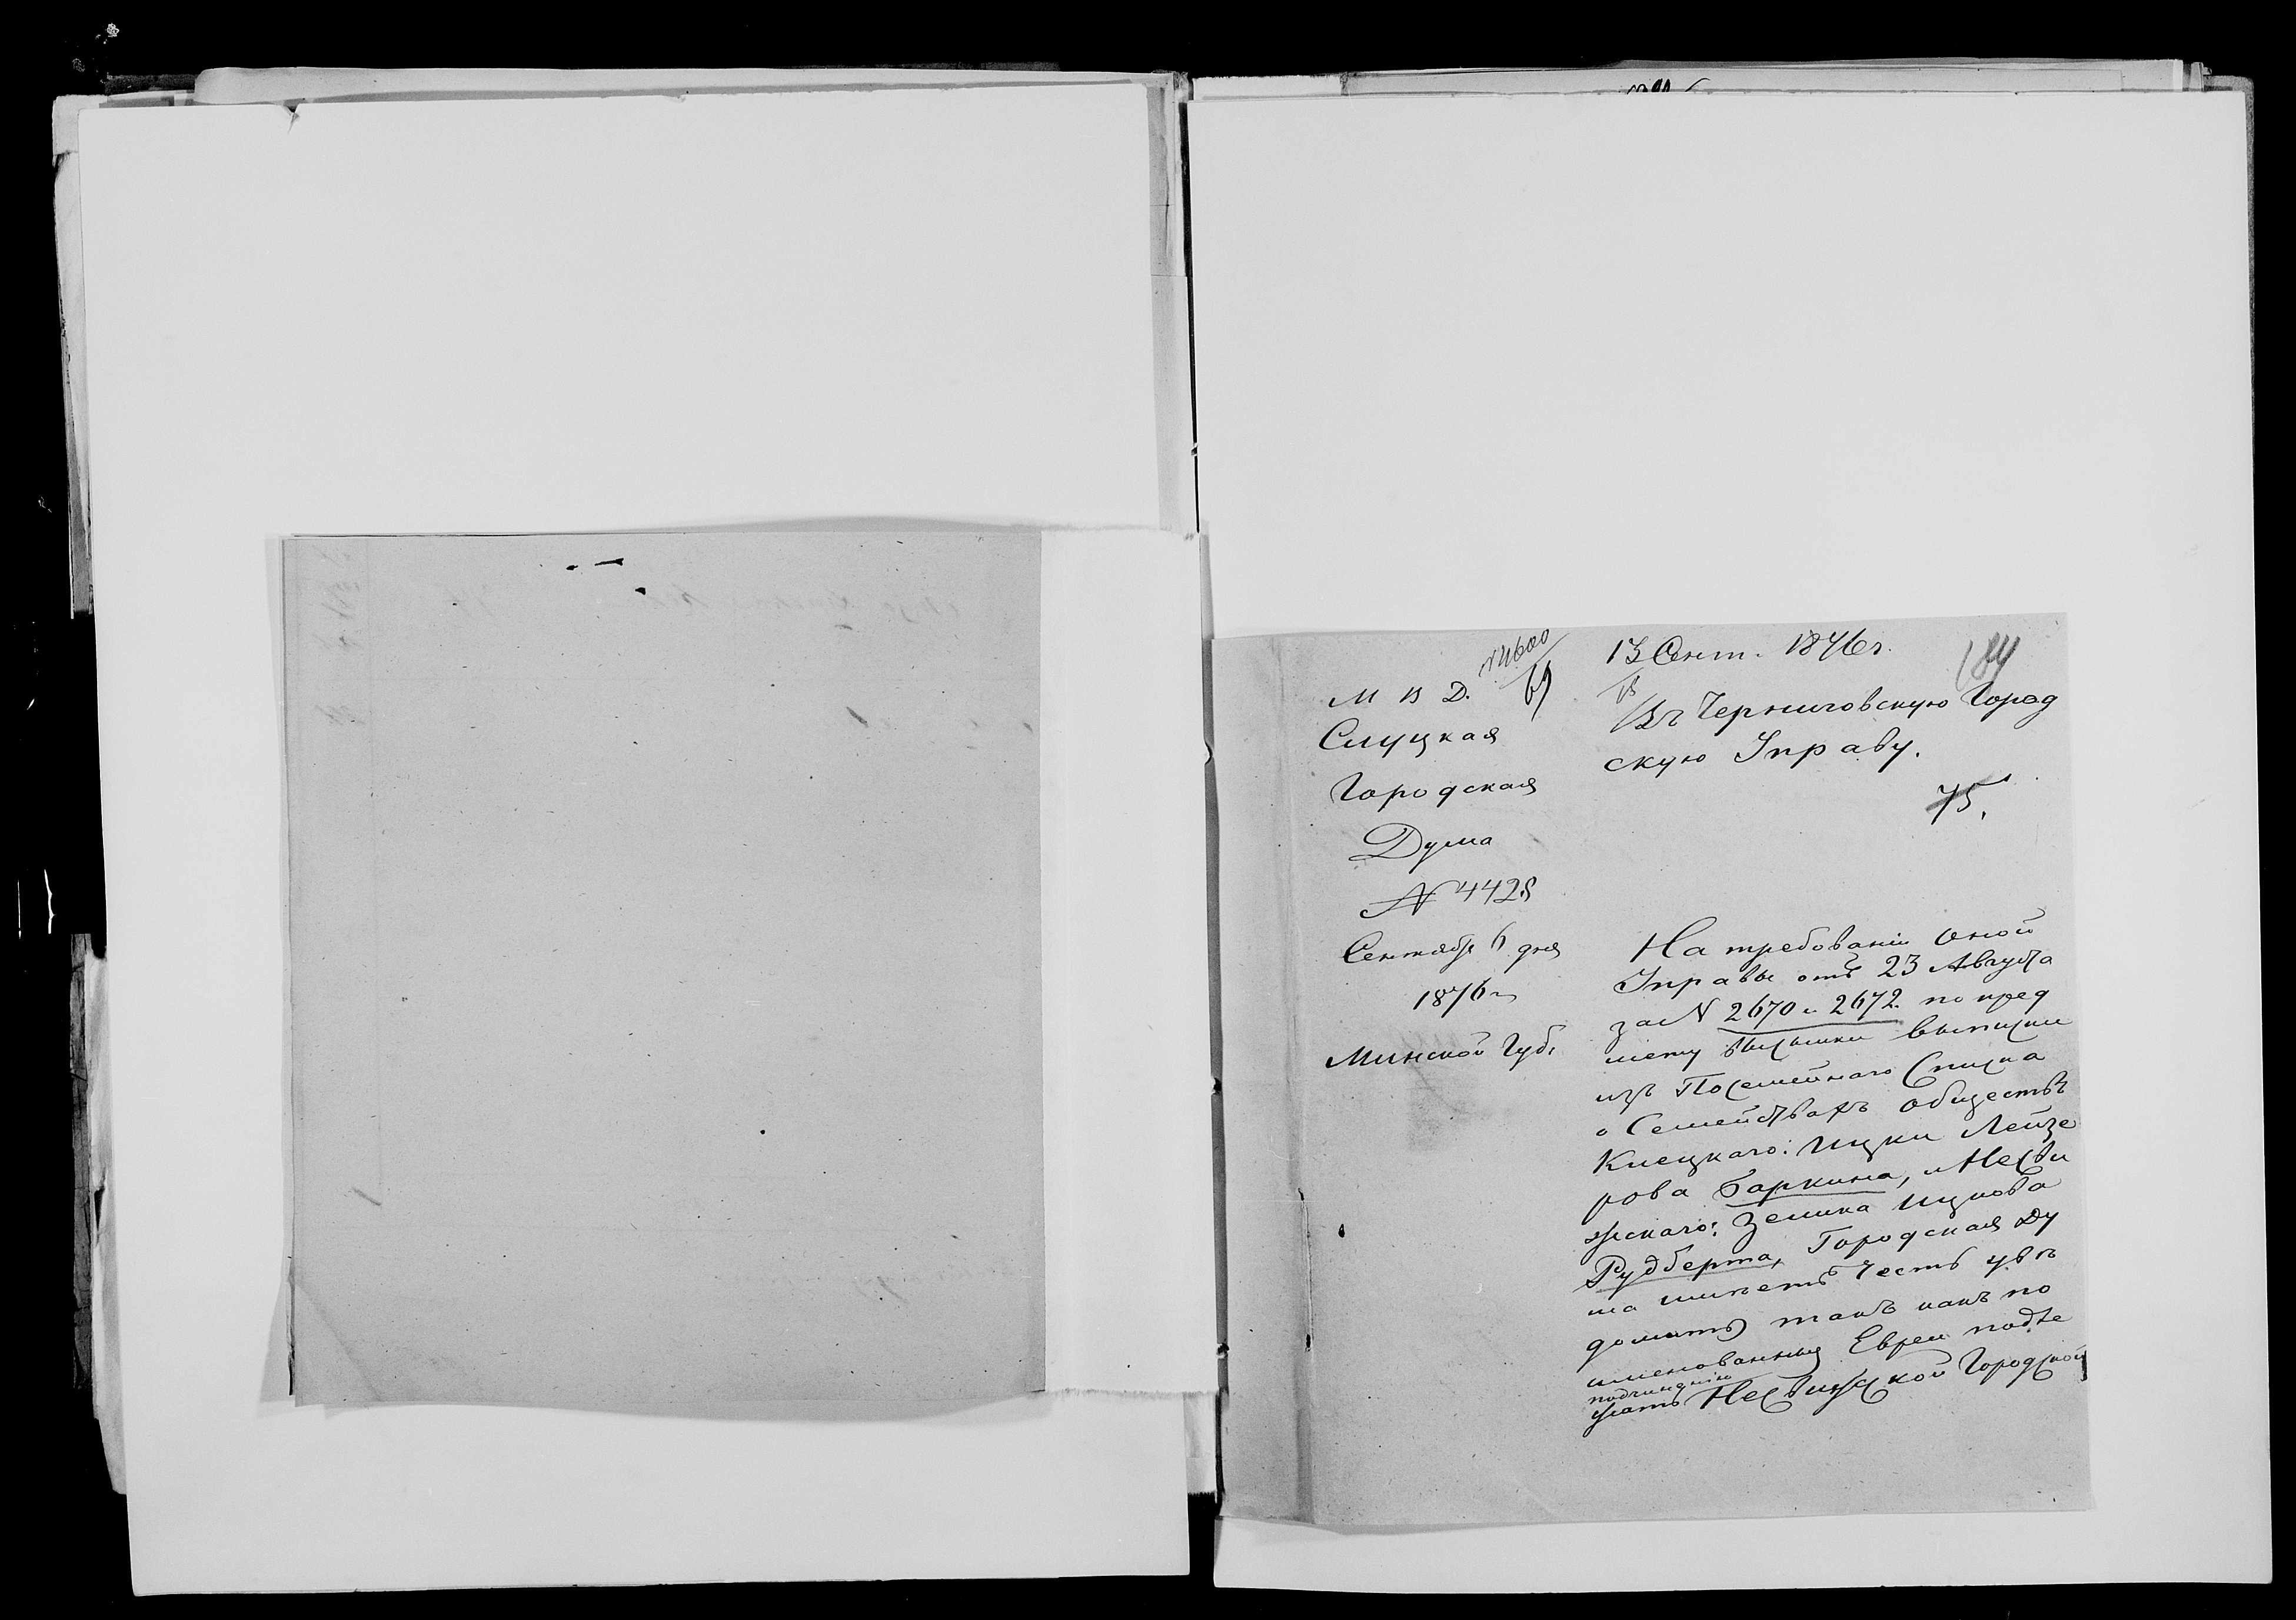 № 4600
69
М В Д.
Слуцкая
Городская
Дума
№ 4428
Сентября 6 дня
1876 г
Минской Губ.
13 Сент. 1876 г.
184
Въ Черниговскую Город
скую Управу.
75.
На требованіи оной
Управы отъ 23 Августа
за № 2670 и 2672 по пред
мету высылки выписки
изъ Посемейнаго Списка
о Семействахъ обществъ
Клецкаго: Ицки Лейзе
рова Баркина, и Несви
жскаго: Зелика Ицкова
Рудберта, Городская Ду
ма имѣетъ честь увѣ
домить такъ какъ по
именованныя Евреи подле
подчиненію
жатъ Несвижской Городской